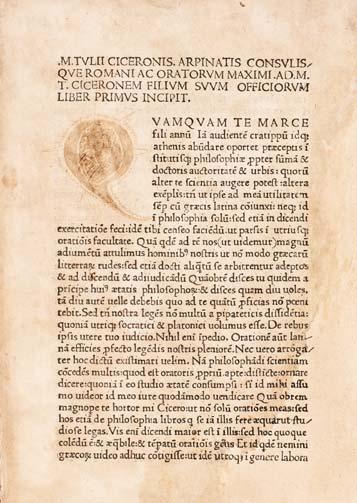 .M.TVLII CICERONIS. ARPINATIS CONSVLIS-
QVE ROMANI AC ORATORVM MAXIMI .AD.M.
T. CICERONEM FILIVM SVVM OFFICIORVM
LIBER PRIMVS INCIPIT.
QVAMQVAM TE MARCE
fili annū Iā audientē cratippū idq;
athenis abūdare oportet præceptis ī
stitutisq; philosophiæ ꝓpter sūmā &
doctoris auctoritatē & urbis: quorū
alter te sciētia augere potest: altera
exēplis: tn̄ ut ipse ad meā utilitatem
sēꝑ cū græcis latina cōiunxi: neq; id
ī philosophia solū: sed etiā in dicendi
exercitatiōe feci: idē tibi censeo faciēdū. ut parsis ī utriusq;
oratiōis facultate. Quā qdē ad rē nos (ut uidemur) magnū
adiumētū attulimus hominibꝰ nostris ut nō modo græcarū
litterarū rudes: sed etiā docti aliqtū se arbitrentur adeptos
& ad discendū & adiudicādū Quāobrē disces tu quidem a
prīcipe huiꝰ ætatis philosophoꝝ: & disces quam diu uoles,
tā diu autē uelle debebis quo ad te quātū ꝓficias nō pœni
tebit. Sed tn̄ nostra legēs nō multū a pipateticis dissidētia:
quoniā utriq; socratici & platonici uolumus esse. De rebus
ipsis utere tuo iudicio. Nihil eni īpedio. Orationē aūt lati-
nā efficies ꝓfecto legēdis nostris pleniorē. Nec uero arroga-
ter hoc dictū existimari uelim. Nā philosophādi scientiam
cōcedēs multis: quod est oratoris ꝓpriū. apte: distīcte: ornare
dicere: quoniā ī eo studio ætatē consumpsi: si id mihi assu
mo uideor id meo iure quodāmodo uendicare Quā obrem
magnope te hortor mi Cicero: ut nō solū oratiōes meas: sed
hos etiā de philosophia libros q se iā illis fere æquarūt stu-
diose legas. Vis eni dicendi maior est ī illis: sed hoc quoque
colēdū ē: & æqbile: & tēpatū orationis genus Et id qdē nemini
græcoꝝ uideo adhuc cōtigisse: ut idē utroq; ī genere labora